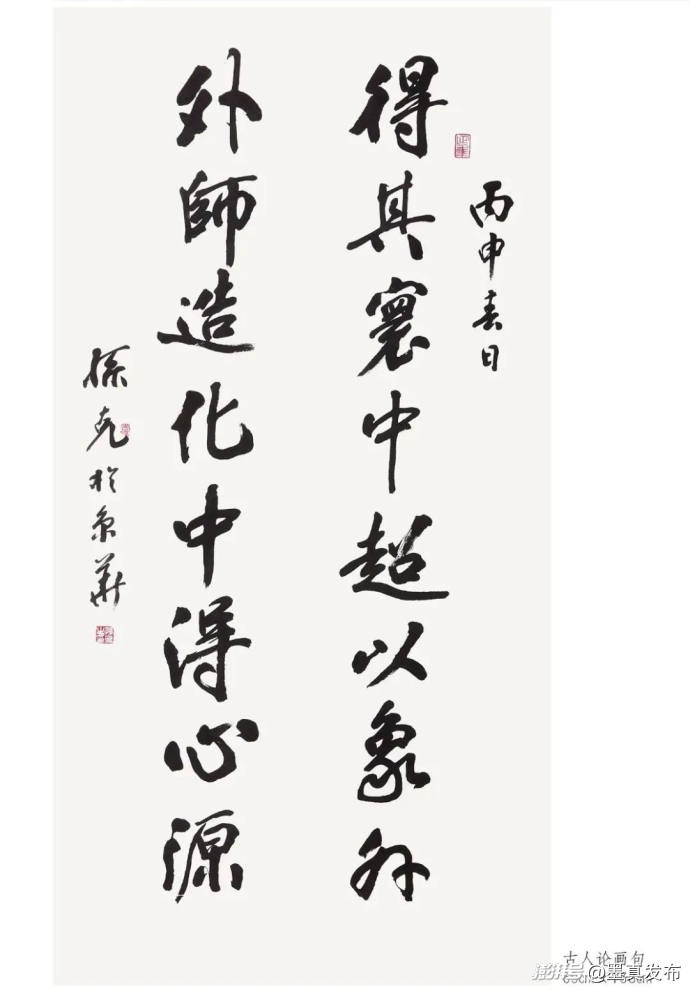 丙申春日
得其寰中超以象外
外師造化中得心源
孫克於京華
古人论画句
澎湃号@墨真发布